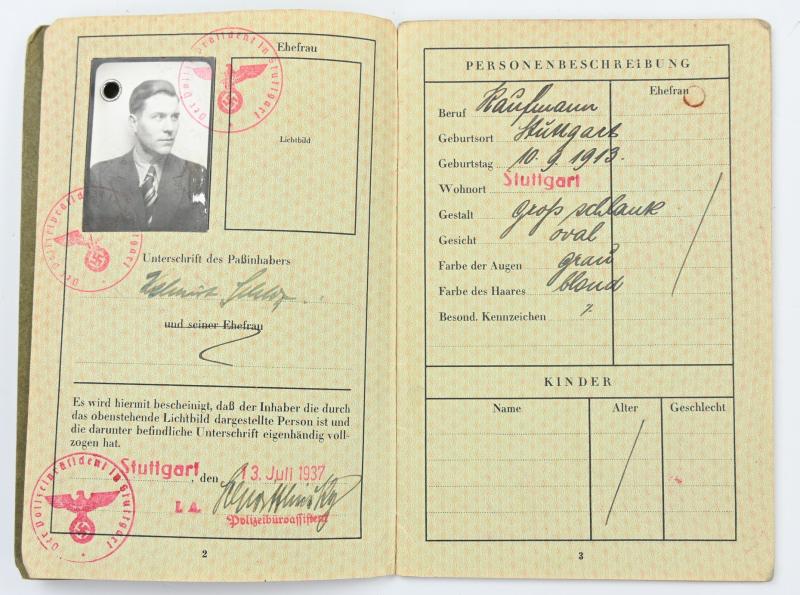 Der Polizeipräsident in Stuttgart
Ehefrau
Lichtbild
Der Polizeipräsident in Stuttgart
Unterschrift des Paßinhabers
Helmut
und seiner Ehefrau
Es wird hiermit bescheinigt, daß der Inhaber die durch
das obenstehende Lichtbild dargestellte Person ist und
die darunter befindliche Unterschrift eigenhändig voll-
zogen hat.
Stuttgart, den 13. Juli 1937
I. A.
Polizeibüroassistent
Der Polizeipräsident in Stuttgart
2
PERSONENBESCHREIBUNG
Ehefrau
Beruf Kaufmann
Geburtsort Stuttgart
Geburtstag 10.9.1913.
Wohnort Stuttgart
Gestalt groß schlank
Gesicht oval
Farbe der Augen grau
Farbe des Haares blond
Besond. Kennzeichen
KINDER
Name Alter Geschlecht
3